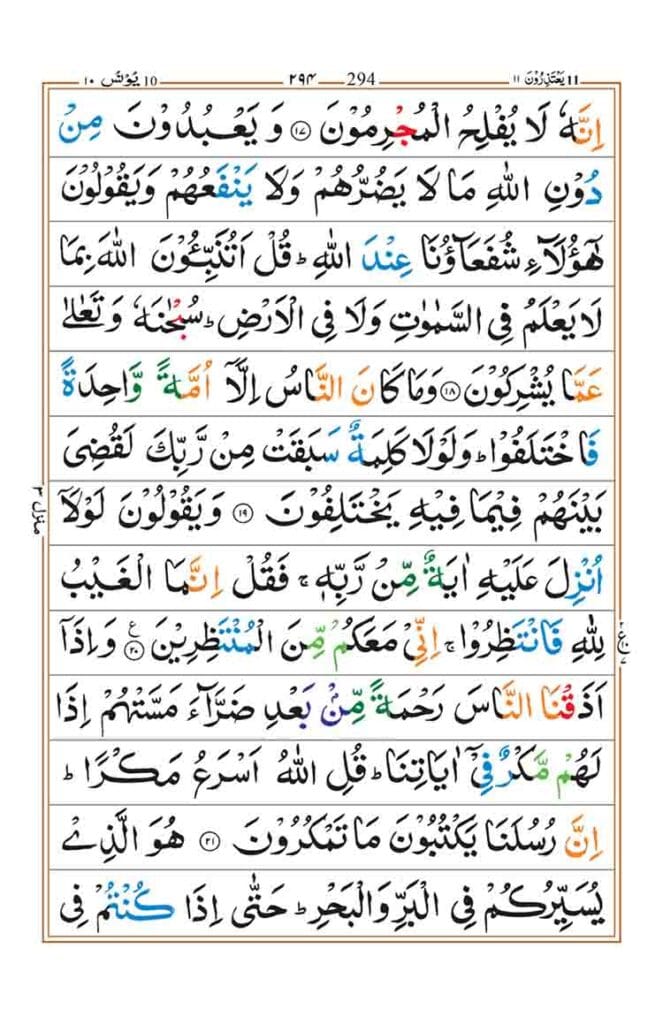 ١١ يَعْتَذِرُوْنَ 11 294 ٢٩٤ 10 يُوْنُس ١٠
اِنَّهٗ لَا يُفْلِحُ الْمُجْرِمُوْنَ ﴿١٧﴾ وَ يَعْبُدُوْنَ مِنْ
دُوْنِ اللّٰهِ مَا لَا يَضُرُّهُمْ وَلَا يَنْفَعُهُمْ وَيَقُوْلُوْنَ
هٰٓؤُلَآءِ شُفَعَآؤُنَا عِنْدَ اللّٰهِ ؕ قُلْ اَتُنَبِّـُٔوْنَ اللّٰهَ بِمَا
لَا يَعْلَمُ فِى السَّمٰوٰتِ وَلَا فِى الْاَرْضِ ؕ سُبْحٰنَهٗ وَ تَعٰلٰى
عَمَّا يُشْرِكُوْنَ ﴿١٨﴾ وَمَا كَانَ النَّاسُ اِلَّاۤ اُمَّةً وَّاحِدَةً
فَاخْتَلَفُوْا ؕ وَلَوْلَا كَلِمَةٌ سَبَقَتْ مِنْ رَّبِّكَ لَقُضِىَ
بَيْنَهُمْ فِيْمَا فِيْهِ يَخْتَلِفُوْنَ ﴿١٩﴾ وَيَقُوْلُوْنَ لَوْلَاۤ
منزل ٣
اُنْزِلَ عَلَيْهِ اٰيَةٌ مِّنْ رَّبِّهٖ ۚ فَقُلْ اِنَّمَا الْغَيْبُ
لِلّٰهِ فَانْتَظِرُوْا ۚ اِنِّىْ مَعَكُمْ مِّنَ الْمُنْتَظِرِيْنَ ﴿٢٠﴾ ع وَاِذَاۤ
اَذَقْنَا النَّاسَ رَحْمَةً مِّنْۢ بَعْدِ ضَرَّآءَ مَسَّتْهُمْ اِذَا
لَهُمْ مَّكْرٌ فِىْۤ اٰيَاتِنَا ؕ قُلِ اللّٰهُ اَسْرَعُ مَكْرًا ؕ
اِنَّ رُسُلَنَا يَكْتُبُوْنَ مَا تَمْكُرُوْنَ ﴿٢١﴾ هُوَ الَّذِىْ
يُسَيِّرُكُمْ فِى الْبَرِّ وَالْبَحْرِ ؕ حَتّٰۤى اِذَا كُنْتُمْ فِى